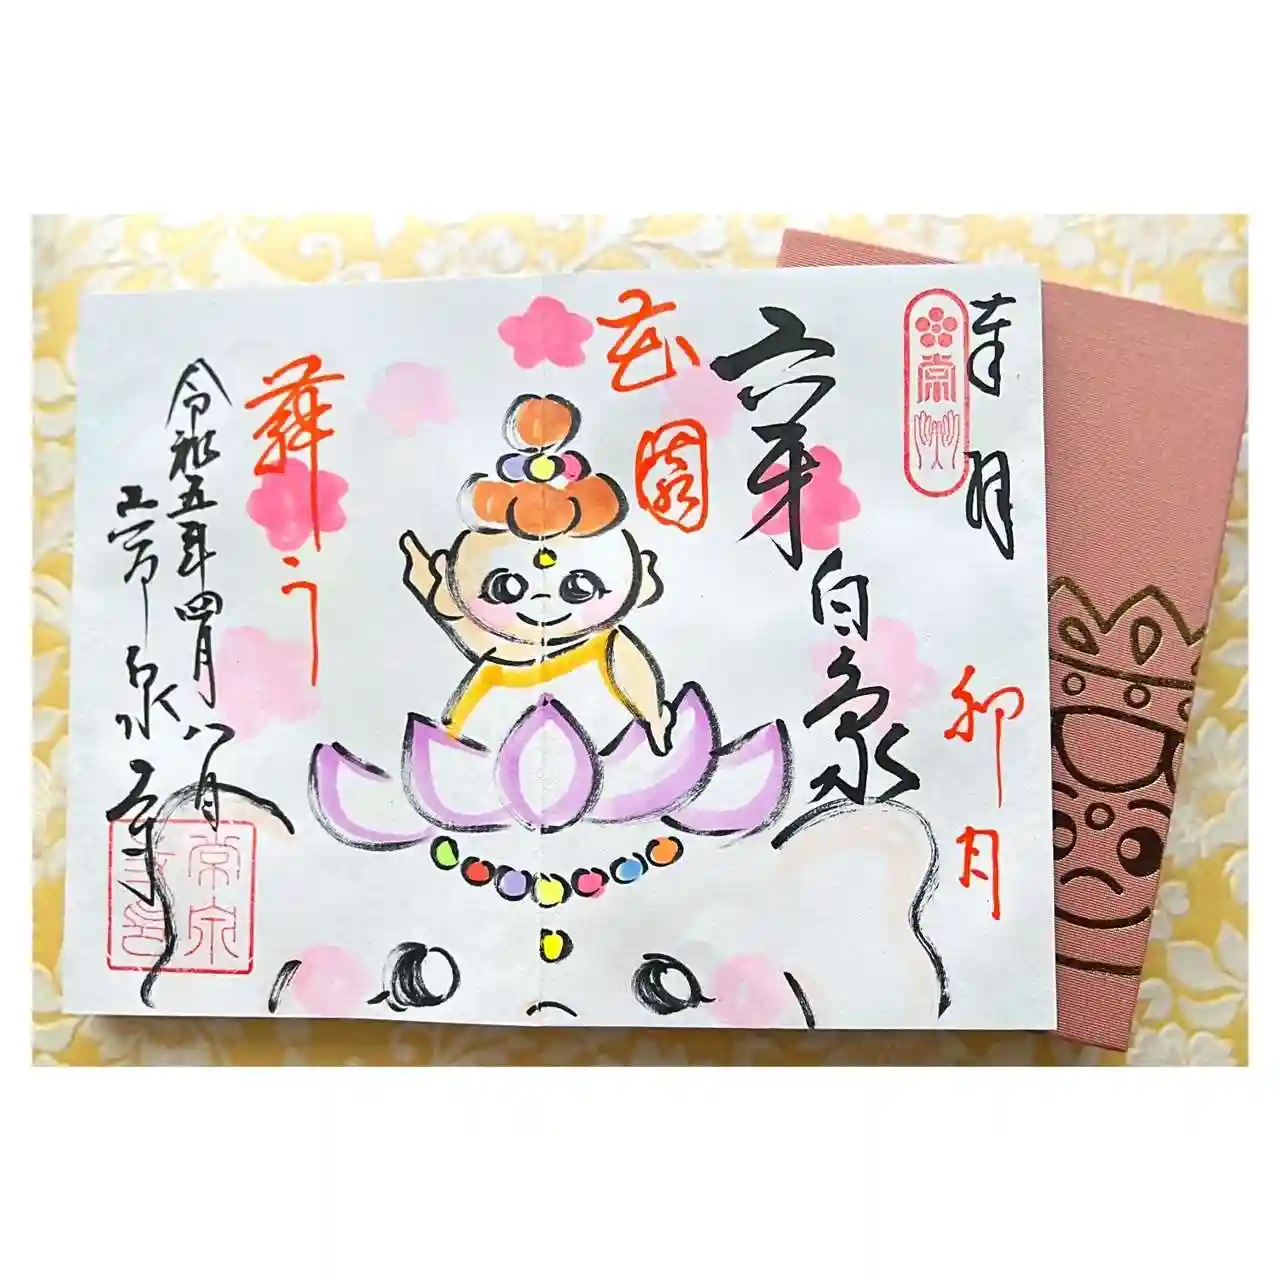 奉拝
卯月
六牙
白象
花園
舞う
令和五年四月八日
常泉寺
常泉